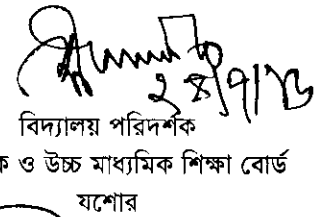 বিদ্যালয় পরিদর্শক
ক ও উচ্চ মাধ্যমিক শিক্ষা বোর্ড
যশোর